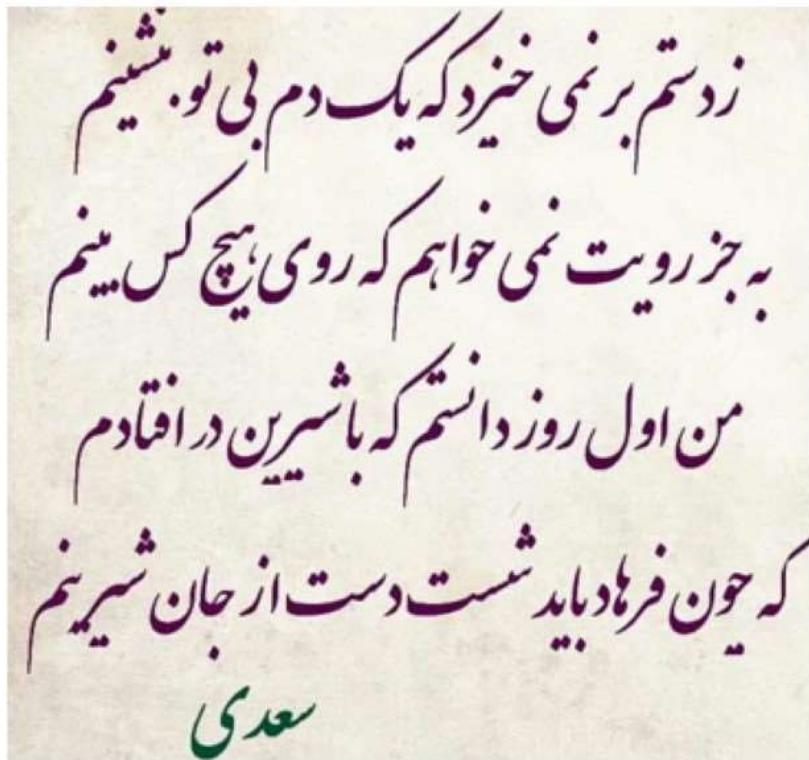 ز دستم بر نمی خیزد که یک دم بی تو بنشینم
به جز رویت نمی خواهم که روی هیچ کس بینم
من اول روز دانستم که با شیرین در افتادم
که چون فرهاد باید شست دست از جان شیرینم
سعدی